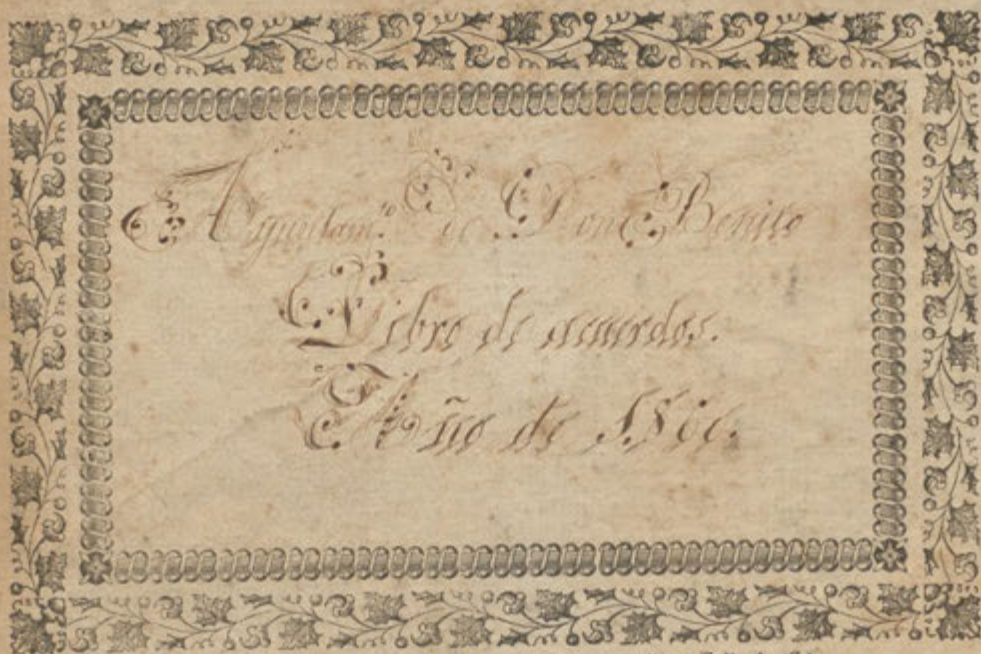 Ayuntam.to de Don Benito
Libro de acuerdos.
Año de 1866.